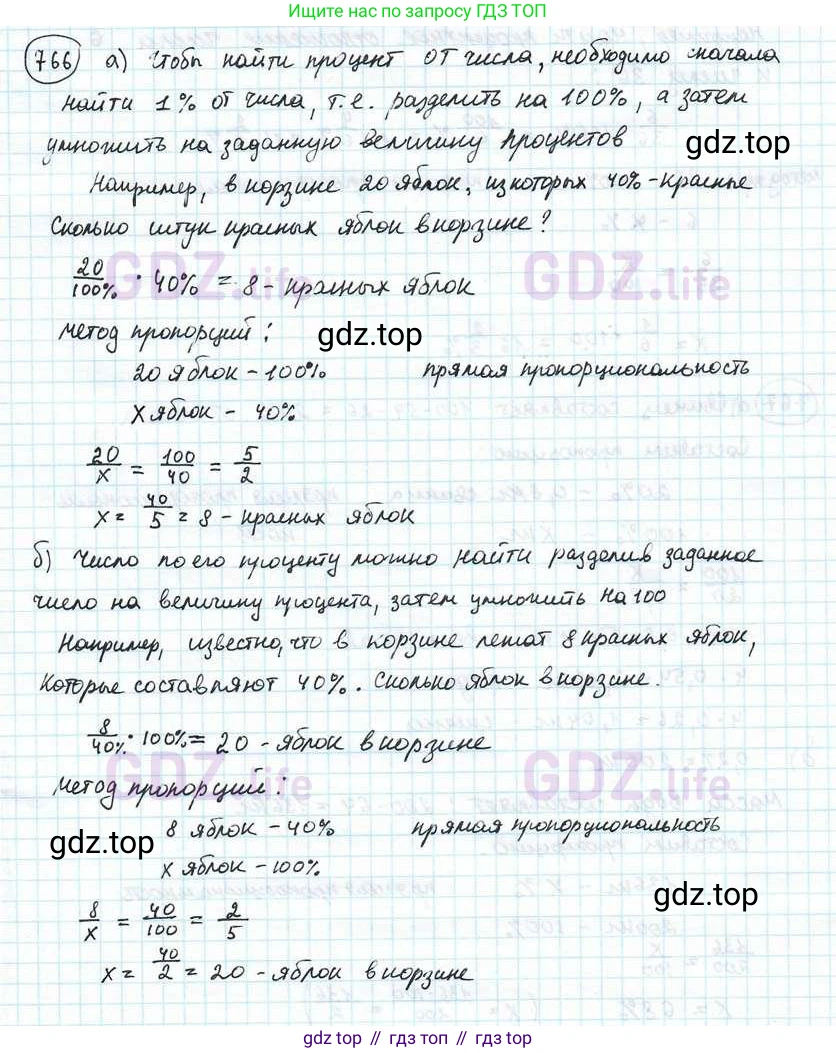 Ищите нас по запросу ГДЗ ТОП
766 а) Чтобы найти процент от числа, необходимо сначала
найти 1% от числа, т.е. разделить на 100%, а затем
умножить на заданную величину процентов
gdz.top
Например, в корзине 20 яблок, из которых 40% - красные
Сколько штук красных яблок в корзине?
GDZ.life GDZ.life
20/100% · 40% = 8 - красных яблок
Метод пропорций:
gdz.top
20 яблок - 100% прямая пропорциональность
x яблок - 40%
20/x = 100/40 = 5/2
x = 40/5 = 8 - красных яблок
GDZ.life GDZ.life
б) Число по его проценту можно найти разделив заданное
число на величину процента, затем умножить на 100
Например, известно, что в корзине лежат 8 красных яблок,
которые составляют 40%. Сколько яблок в корзине.
8/40% · 100% = 20 - яблок в корзине
GDZ.life GDZ.life
Метод пропорций:
8 яблок - 40% прямая пропорциональность
gdz.top
x яблок - 100%
gdz.top
8/x = 40/100 = 2/5
x = 40/2 = 20 - яблок в корзине
gdz.top // гдз топ // гдз.топ